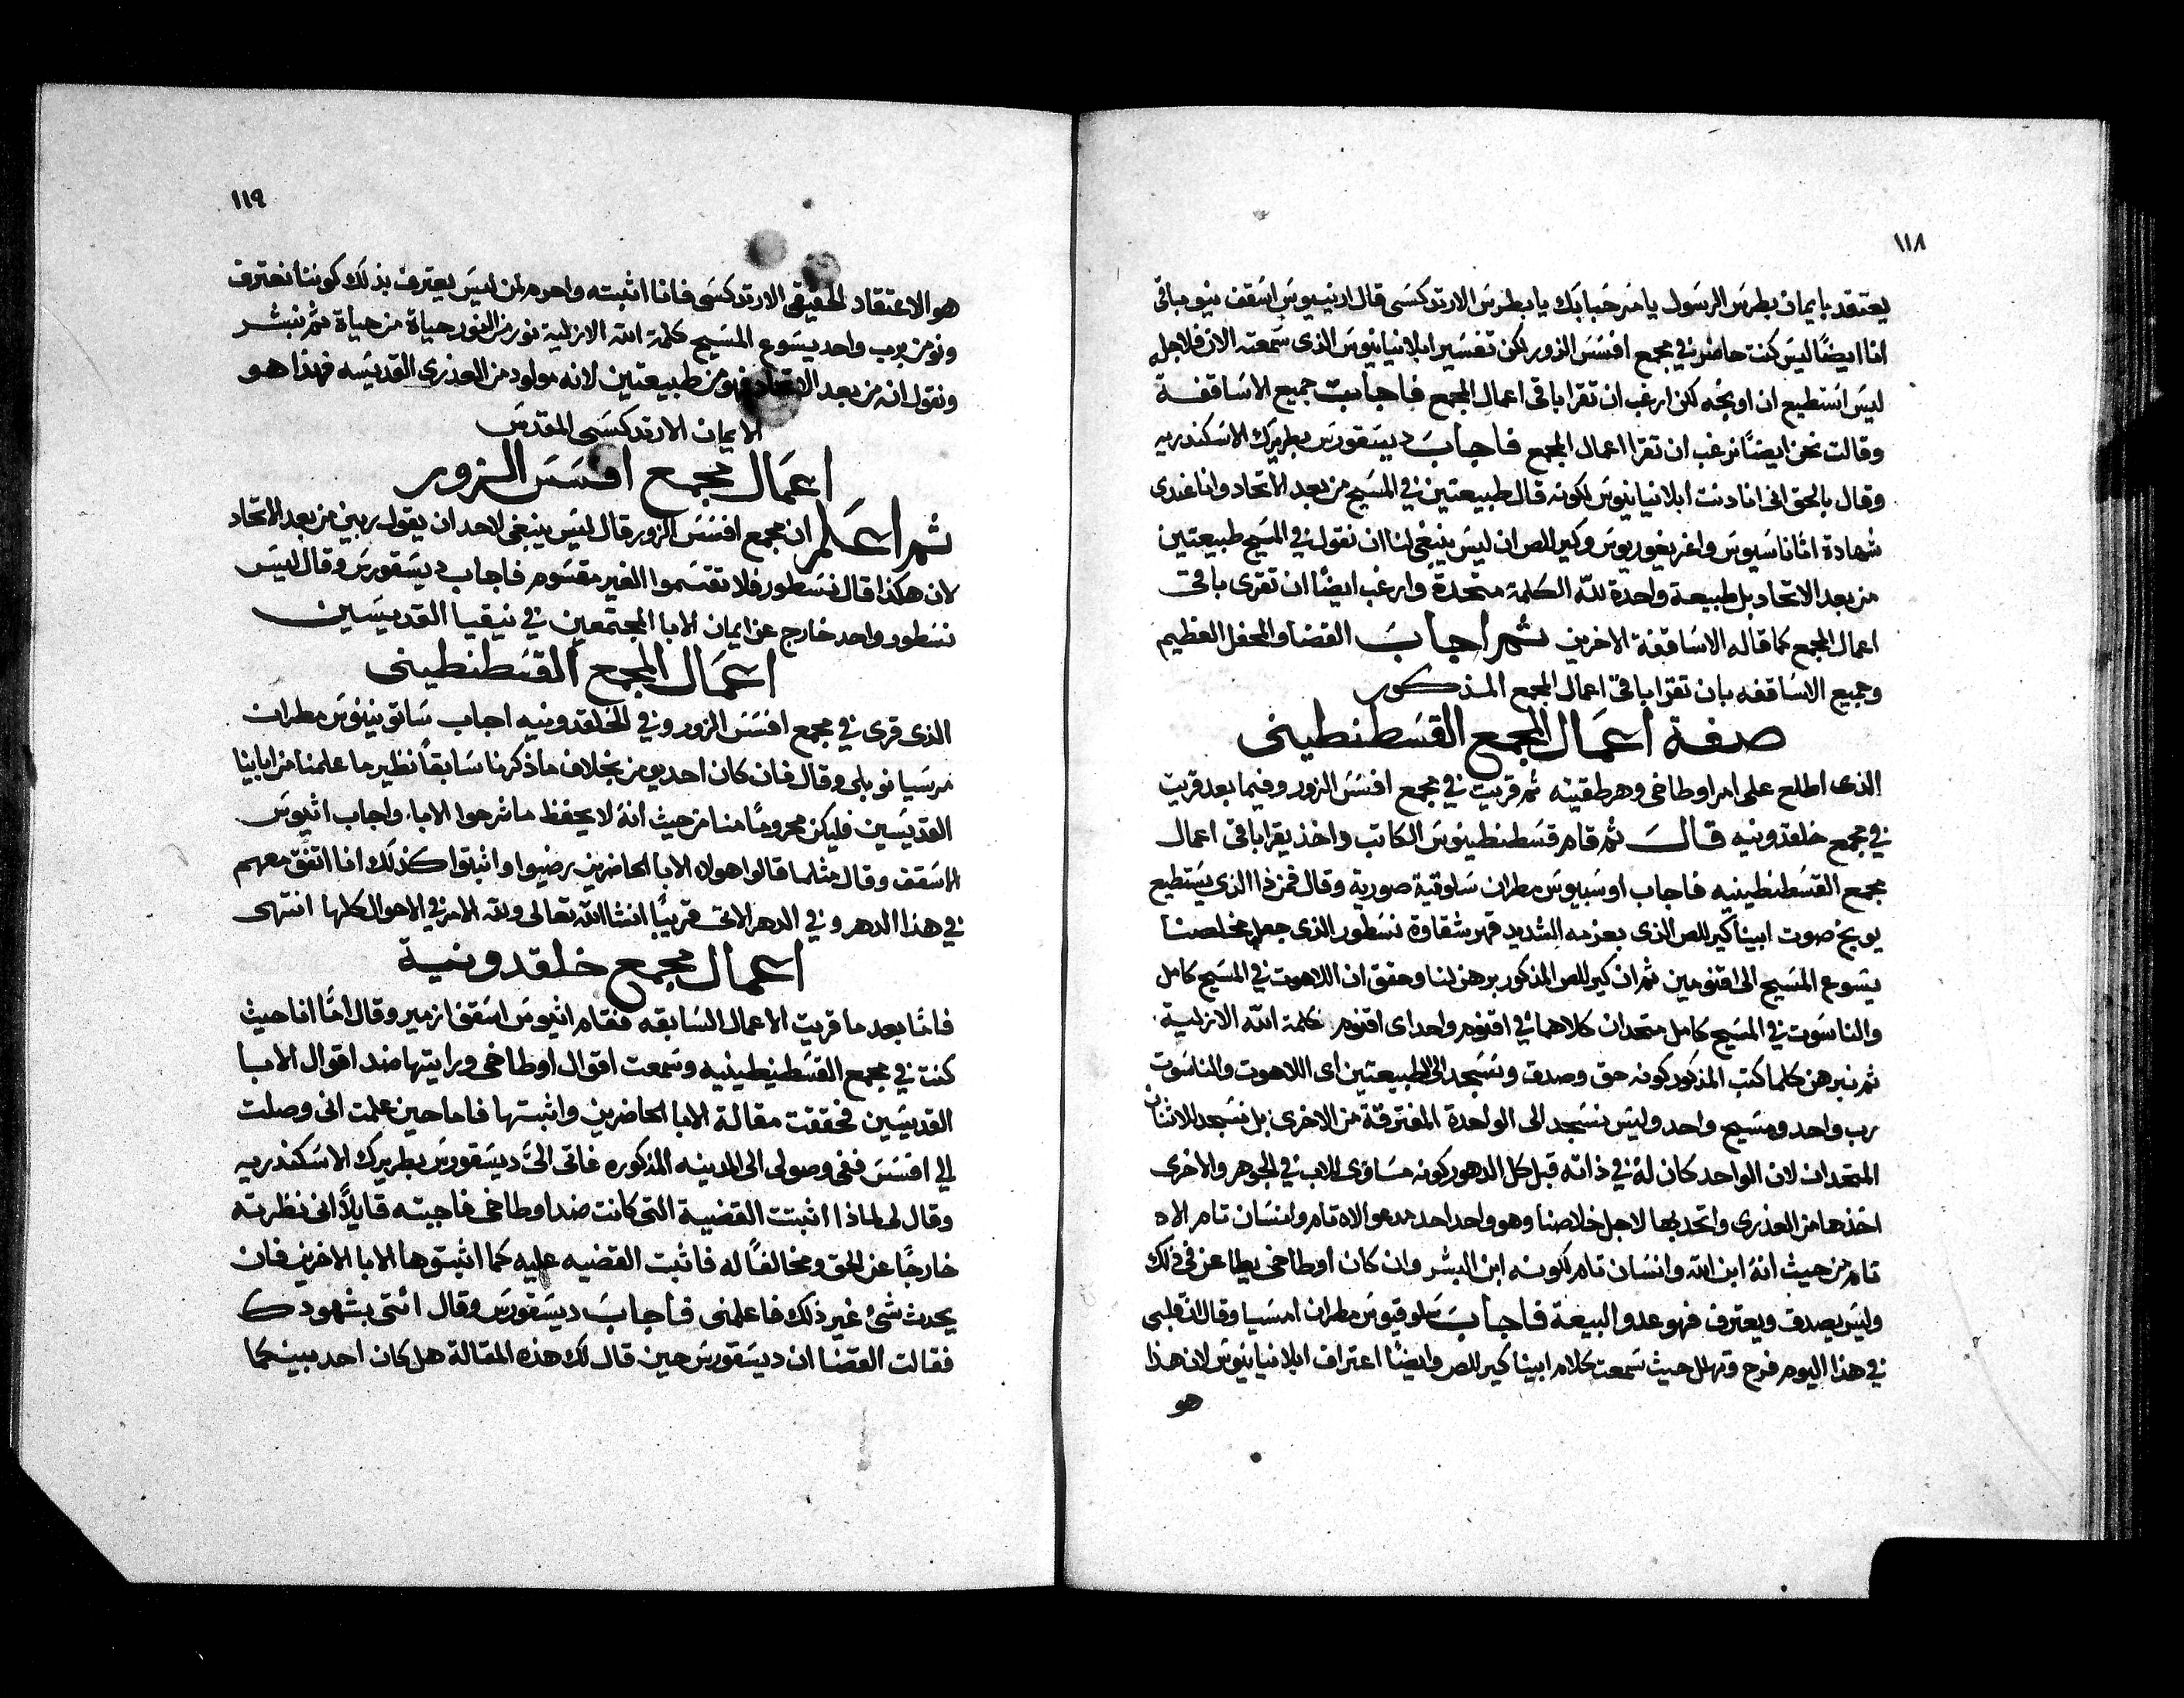 ١١٨
يعتقد بايمان بطرس الرسول يا مرحبا بك يا بطرس الارتدكسى قال ارنيبوس اسقف بنو مباتى
انا ايضًا ليس كنت حاضر في مجمع افسس الزور لكن تفسير ابلانيانيوس الذى سمعته الان فلاجله
ليس استطيع ان اوبخه لكن ارغب ان تقرا باقى اعمال المجمع فاجابت جميع الاساقفة
وقالت نحن ايضًا نرغب ان تقرا اعمال المجمع فاجاب ديسقورس بطريرك الاسكندريه
وقال بالحق انى انا دنت ابلانيانيوس لكونه قال طبيعتين في المسيح من بعد الاتحاد وانا عندى
شهادة اثاناسيوس واغريغوريوس وكيرللص ان ليس ينبغى لنا ان نقول في المسيح طبيعتين
من بعد الاتحاد بل طبيعة واحدة لله الكلمة متحدة وارغب ايضًا ان تقرى باقى
اعمال المجمع كما قاله الاساقفة الاخرين ثم اجاب القضا والمحفل العظيم
وجميع الاساقفه بان تقرا باقى اعمال المجمع المذكور
صفة اعمال المجمع القسطنطينى
الذى اطلع على امر اوطاخى وهرطقيته ثم قريت في مجمع افسس الزور وفيما بعد قريت
في مجمع خلقدونيه قال ثم قام قسطنطينوس الكاتب واخذ يقرا باقى اعمال
مجمع القسطنطينيه فاجاب اوسبيوس مطران سلوقية صورية وقال فمن ذا الذى يستطيع
يوبخ صوت ابينا كيرللص الذى بعزمه الشديد قهر شقاوة نسطور الذى جعل مخلصنا
يسوع المسيح الى اقنومين ثم ان كيرللص المذكور برهن لنا وحقق ان اللاهوت في المسيح كامل
والناسوت في المسيح كامل متحدان كلاهما في اقنوم واحد اى اقنوم كلمة الله الازلية
ثم نبرهن كلما كتب المذكور كونه حق وصدق ونسجد الى الطبيعتين اى اللاهوت والناسوت
رب واحد ومسيح واحد وليس نسجد الى الواحدة المفترقة من الاخرى بل نسجد للاثنان
المتحدان لان الواحد كان له في ذاته قبل كل الدهور كونه مساوى للاب في الجوهر والاخرى
اخذها من العذرى واتحد بها لاجل خلاصنا وهو واحد احد مدعو الاه تام وانسان تام الاه
تام من حيث انه ابن الله وانسان تام لكونه ابن البشر وان كان اوطاخى يطاعن في ذلك
وليس يصدق ويعترف فهو عدو البيعة فاجاب سلوقيوس مطران امسيا وقال ان قلبى
في هذا اليوم فرح وتهلل حيث سمعت كلام ابينا كيرللص وايضًا اعتراف ابلانيانيوس لان هذا
هو
١١٩
هو الاعتقاد الحقيقى الارتدكسى فانا اثبته واحرم لمن ليس يعترف بذلك كوننا نعترف
ونومن برب واحد يسوع المسيح كلمة الله الازلية نور من النور حياة من حياة ثم نبشر
ونقول انه من بعد الاتحاد هو من طبيعتين لانه مولود من العذرى القديسه فهذا هو
الايمان الارتدكسى المقدس
اعمال مجمع افسس الزور
ثم اعلم ان مجمع افسس الزور قال ليس ينبغى لاحد ان يقول ربين من بعد الاتحاد
لان هكذا قال نسطور فلا تقسموا الغير مقسوم فاجاب ديسقورس وقال ليس
نسطور واحد خارج عن ايمان الابا المجتمعين في نيقيا القديسين
اعمال المجمع القسطنطينى
الذى قرى في مجمع افسس الزور وفي الخلقدونيه اجاب ساتونينوس مطران
مرسيانوبلى وقال فان كان احد يومن بخلاف ما ذكرنا سابقًا نظير ما علمنا من ابائنا
القديسين فليكن محرومًا منا من حيث انه لا يحفظ ما شرحوا الابا واجاب اثيوس
الاسقف وقال مثلما قالوا هولاه الابا الحاضرين رضيوا واثبتوا كذلك انا اتفق معهم
في هذا الدهر وفي الدهر الاتى قريبًا انشا الله تعالى ولله الامر في الاحوال كلها انتهى
اعمال مجمع خلقدونية
فامّا بعد ما قريت الاعمال السابقه فقام اثيوس اسقف ازمير وقال امّا انا حيث
كنت في مجمع القسطنيطينيه وسمعت اقوال اوطاخى ورايتها ضد اقوال الابا
القديسين فحققت مقالة الابا الحاضرين واثبتها فاما حين علمت انى وصلت
الي افسس ففى وصولى الى المدينه المذكوره فاتى الىّ ديسقورس بطريرك الاسكندريه
وقال لى لماذا اثبتت القضية التى كانت ضد اوطاخى فاجبته قايلاً انى نظرته
خارجًا عن الحق ومخالفًا له فاثبت القضيه عليه كما اثبتوها الابا الاخرين فان
يحدث شئ غير ذلك فاعلمنى فاجاب ديسقورس وقال ائتى بشهودك
فقالت القضا ان ديسقورس حين قال لك هذه المقالة هل كان احد بينكما